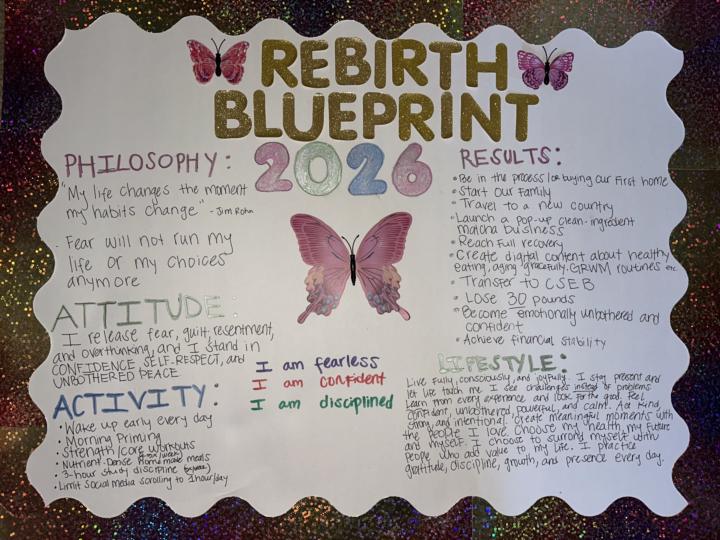 REBIRTH
BLUEPRINT
2026
PHILOSOPHY:
"My life changes the moment
my habits change." - Jim Rohn
. Fear will not run my
life or my choices
anymore
ATTITUDE:
I release fear, guilt, resentment,
and overthinking, and I stand in
CONFIDENCE, SELF-RESPECT, and
UNBOTHERED PEACE
ACTIVITY:
• Wake up early every day
• Morning Priming
• Strength/core workouts
• Nutrient-Dense Homemade meals
• 3-hour study discipline
• Limit Social media scrolling to 1hour/day
I am fearless
I am confident
I am disciplined
RESULTS:
• Be in the process for buying our First home
• Start Our Family
• Travel to a new country
• Launch a pop-up clean-ingredient
matcha business
• Reach Full recovery
• Create digital content about healthy
eating, aging gracefully, GRWM routines etc
• Transfer to CSEB
• Lose 30 pounds
• Become emotionally unbothered and
confident
• Achieve financial stability
LIFESTYLE:
Live fully, consciously, and joyfully. I stay present and
let life touch me. I see challenges instead of problems
Learn from every experience and look for the good. Feel
confident, unbothered, powerful, and calm. Act kind,
strong, and intentional. Create meaningful moments with
the people I love. Choose my health, my future
and myself. I choose to surround myself with
people who add value to my life. I practice
gratitude, discipline, growth, and presence every day.